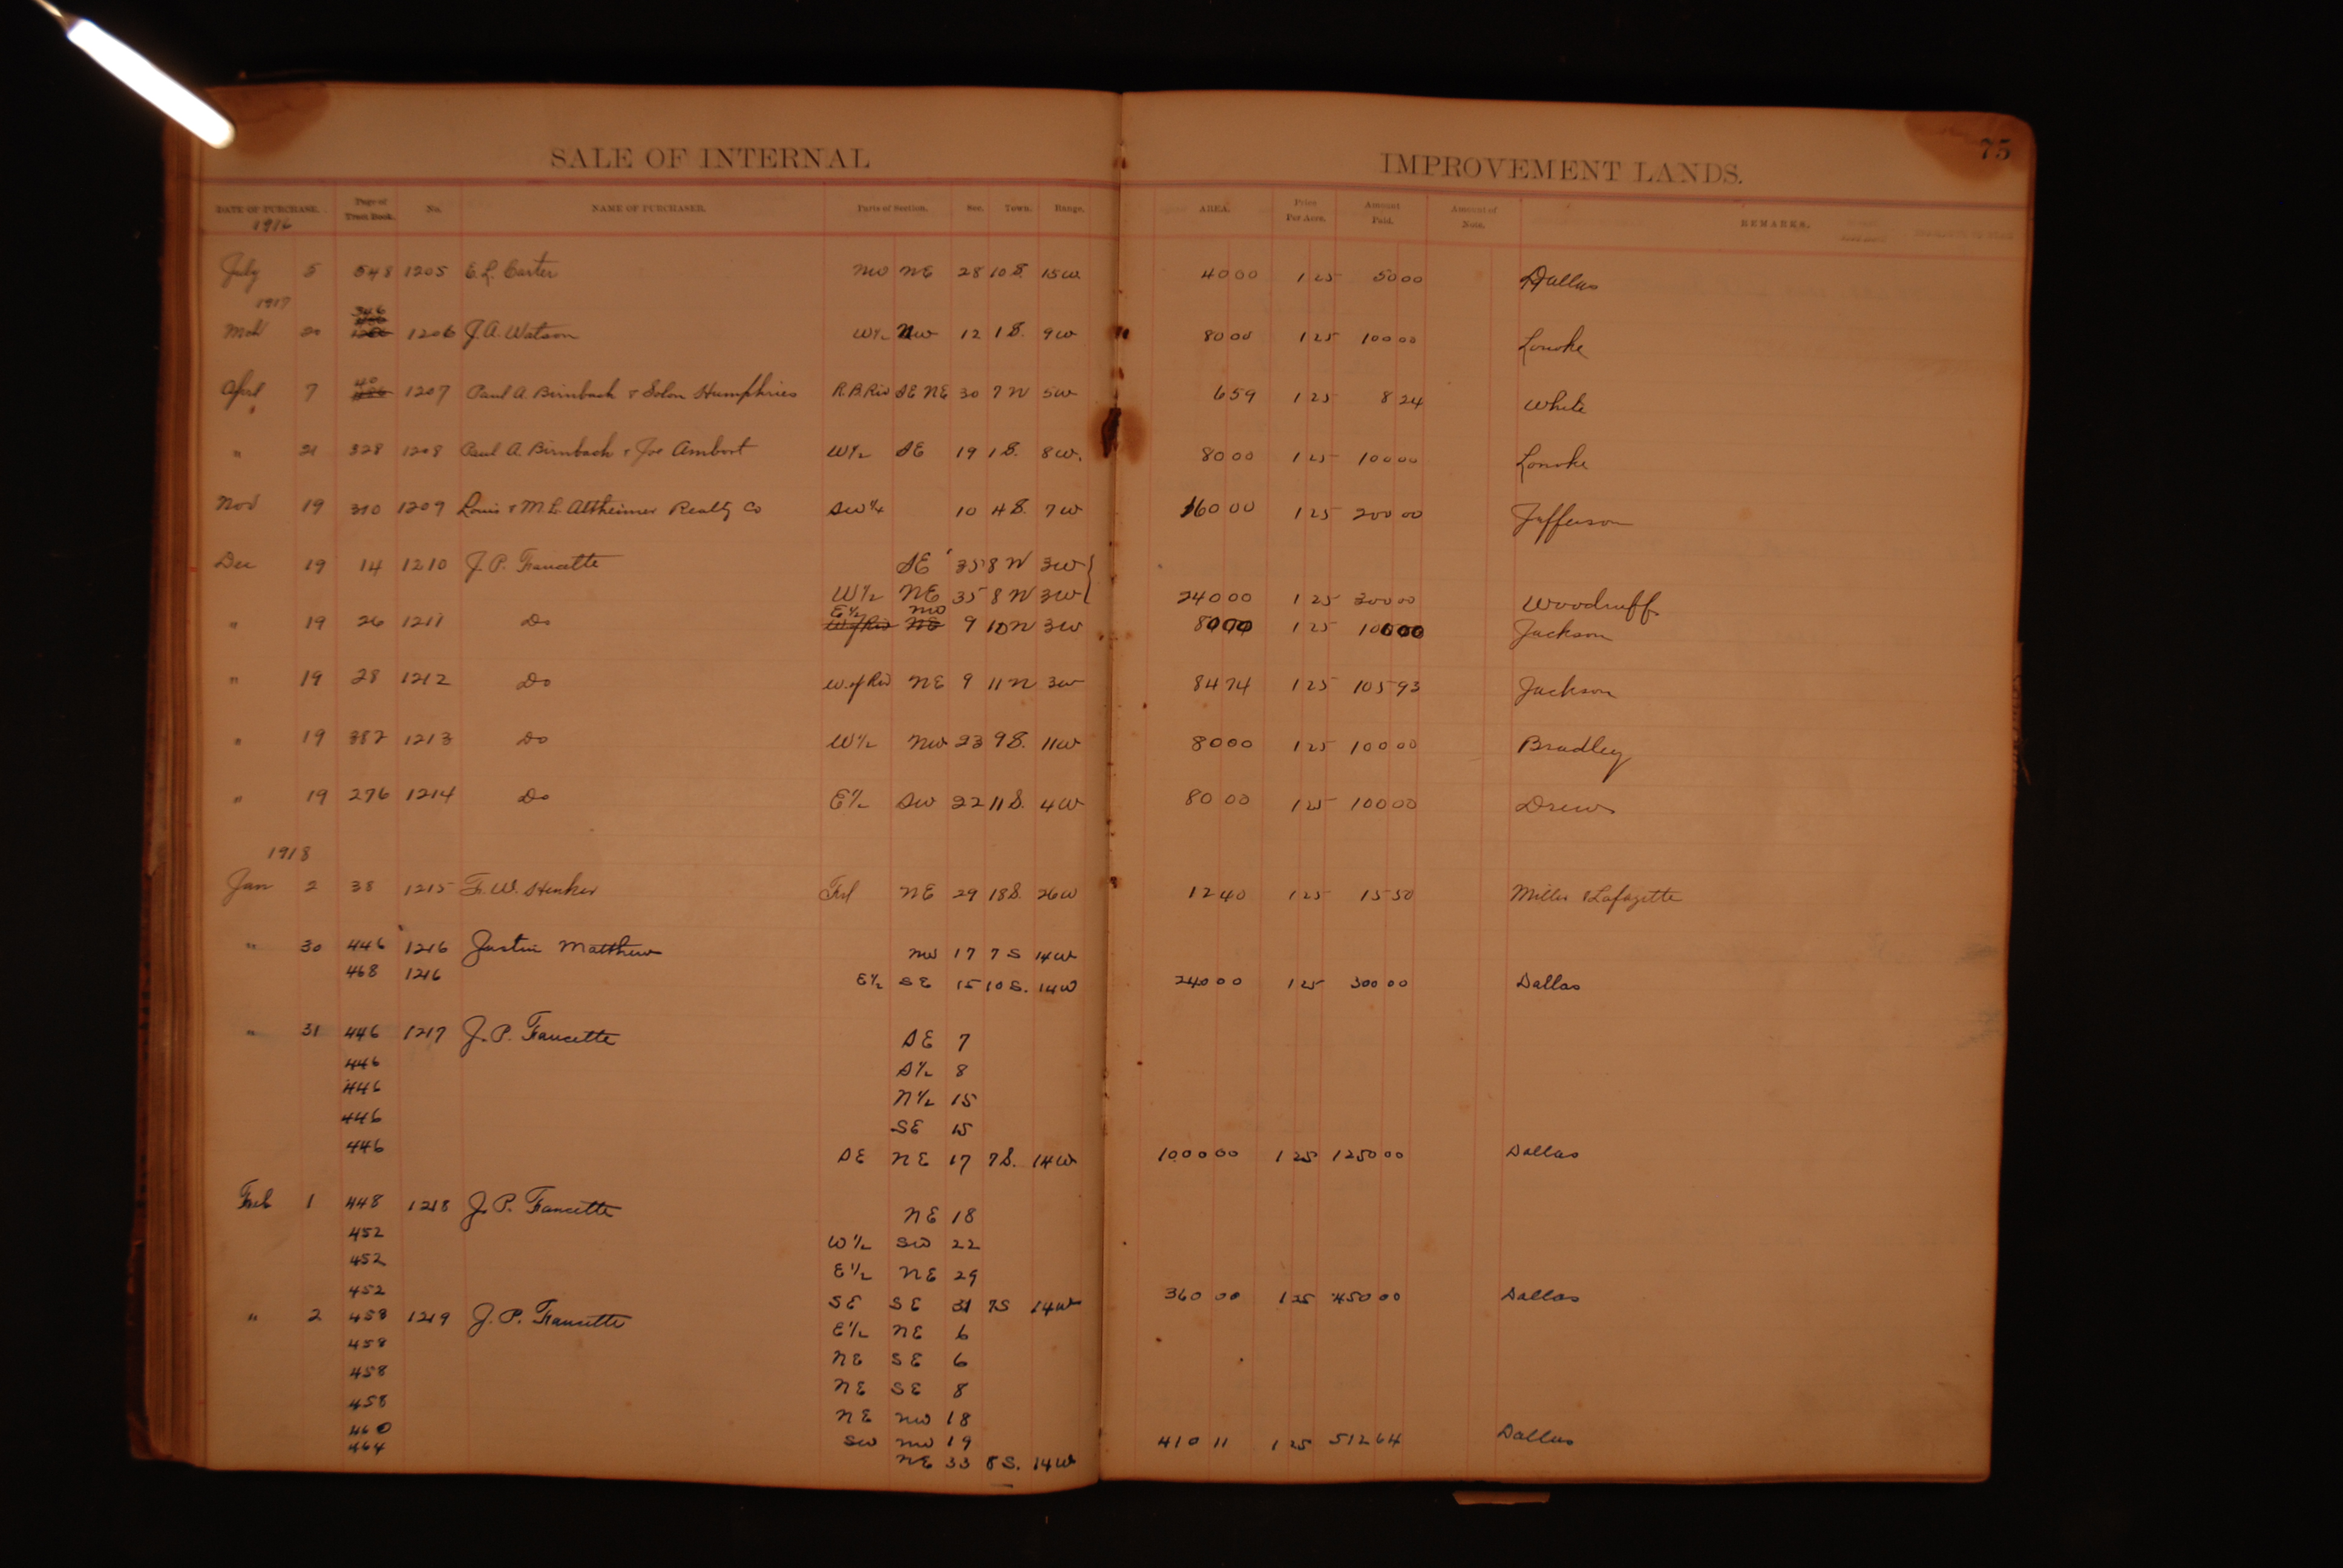 SALE OF INTERNAL IMPROVEMENT LANDS.
75
DATE OF PURCHASE. Page of Tract Book. No. NAME OF PURCHASER. Parts of Section. Sec. Town. Range. AREA. Price Per Acre. Amount Paid. Amount of Note. REMARKS.
1916
July 5 548 1205 E. L. Carter NW NE 28 10 S. 15W 40 00 1 25 50 00 Dallas
1917
346
Mch 20 1206 J. A. Watson W½ NW 12 1 S. 9W 80 00 1 25 100 00 Lonoke
40
April 7 1207 Paul A. Birnbach & Solon Humphries R.B.Riv SE NE 30 7 N 5W 6 59 1 25 8 24 White
" 21 328 1208 Paul A. Birnbach & Joe Ambort W½ SE 19 1 S. 8W. 80 00 1 25 100 00 Lonoke
Nov 19 310 1209 Louis & M. L. Altheimer Realty Co SW¼ 10 4 S. 7W 160 00 1 25 200 00 Jefferson
Dec 19 14 1210 J. P. Faucette SE 35 8 N 3W
W½ NE 35 8 N 3W 240 00 1 25 300 00 Woodruff
E½ NW
" 19 26 1211 Do W of Riv NE 9 10 N 3W 80 00 1 25 100 00 Jackson
" 19 28 1212 Do W. of Riv NE 9 11 N 3W 84 74 1 25 105 93 Jackson
" 19 382 1213 Do W½ NW 23 9 S. 11W 80 00 1 25 100 00 Bradley
" 19 276 1214 Do E½ SW 22 11 S. 4W 80 00 1 25 100 00 Drew
1918
Jan 2 38 1215 F. W. Henker Frl NE 29 18 S. 26W 12 40 1 25 15 50 Miller & Lafayette
" 30 446 1216 Justin Matthews NW 17 7 S 14W
468 1216 E½ SE 15 10 S. 14W 240 00 1 25 300 00 Dallas
" 31 446 1217 J. P. Faucette SE 7
446 S½ 8
446 N½ 15
446 SE 15
446 SE NE 17 7 S. 14W 1000 00 1 25 1250 00 Dallas
Feb 1 448 1218 J. P. Faucette NE 18
452 W½ SW 22
452 E½ NE 29
452 SE SE 31 7 S 14W 360 00 1 25 450 00 Dallas
" 2 458 1219 J. P. Faucette E½ NE 6
458 NE SE 6
458 NE SE 8
458 NE NW 18
460 SW NW 19
464 NE 33 8 S. 14W 410 11 1 25 512 64 Dallas